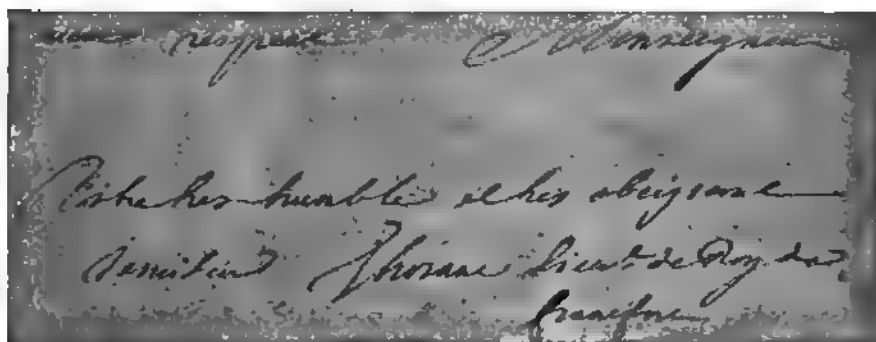 respect Monseigneur
Votre tres humble et tres obeissant
serviteur Thoranc Lieut de Roy
francfort